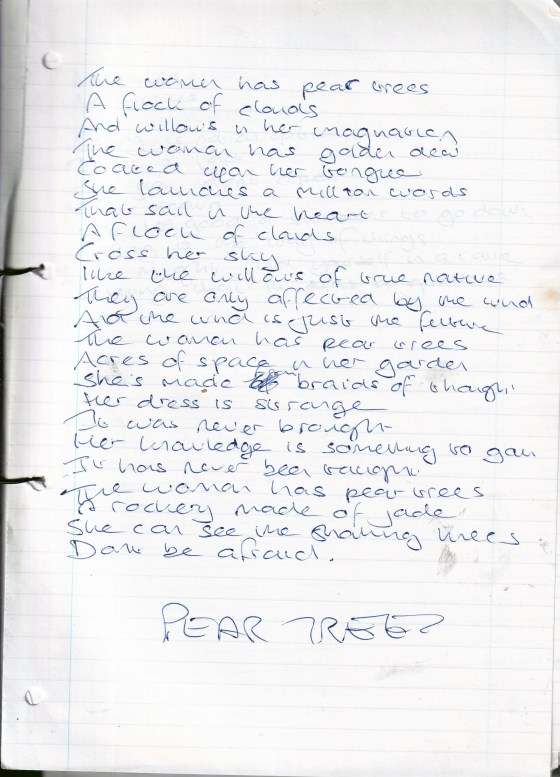 The woman has pear trees
A flock of clouds
And willows in her imagination
The woman has golden dew
Coated upon her tongue
She launches a million words
That sail in the heart
A flock of clouds
Cross her sky
like the willows of true native
They are only affected by the wind
And the wind is just the future
The woman has pear trees
Acres of space in her garden
She's made braids of thought
Her dress is strange
It was never brought
Her knowledge is something to gain
It has never been taught
The woman has pear trees
A rockery made of jade
She can see the shaking trees
Dont be afraid.
PEAR TREE?